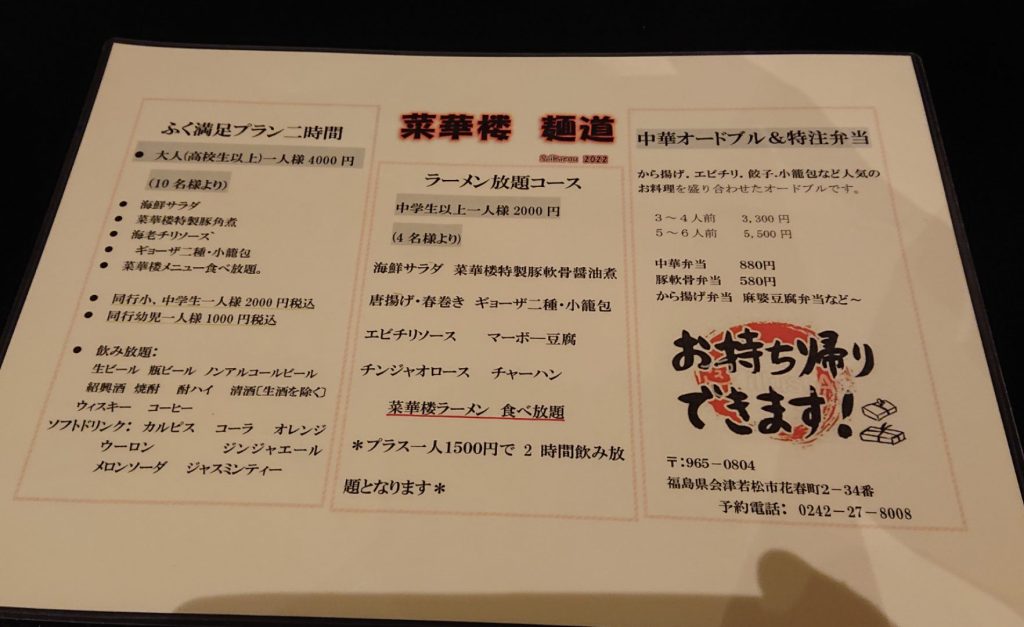 ふく満足プラン二時間
● 大人(高校生以上)一人様4000円
(10名様より)
● 海鮮サラダ
● 菜華楼特製豚角煮
● 海老チリソース
● ギョーザ二種・小籠包
● 菜華楼メニュー食べ放題。
● 同行小,中学生一人様2000円税込
● 同行幼児一人様1000円税込
● 飲み放題:
生ビール 瓶ビール ノンアルコールビール
紹興酒 焼酎 酎ハイ 清酒[生酒を除く]
ウィスキー コーヒー
ソフトドリンク: カルピス コーラ オレンジ
ウーロン ジンジャエール
メロンソーダ ジャスミンティー
菜華楼 麺道
Saikarou 2022
ラーメン放題コース
中学生以上一人様2000円
(4名様より)
海鮮サラダ 菜華楼特製豚軟骨醤油煮
唐揚げ・春巻き ギョーザ二種・小籠包
エビチリソース マーボー豆腐
チンジャオロース チャーハン
菜華楼ラーメン 食べ放題
*プラス一人1500円で 2 時間飲み放
題となります*
中華オードブル&特注弁当
から揚げ,エビチリ,餃子,小籠包など人気の
お料理を盛り合わせたオードブルです。
3~4人前 3,300円
5~6人前 5,500円
中華弁当 880円
豚軟骨弁当 580円
から揚げ弁当 麻婆豆腐弁当など~
お持ち帰り
できます!
〒:965-0804
福島県会津若松市花春町2-34番
予約電話: 0242-27-8008